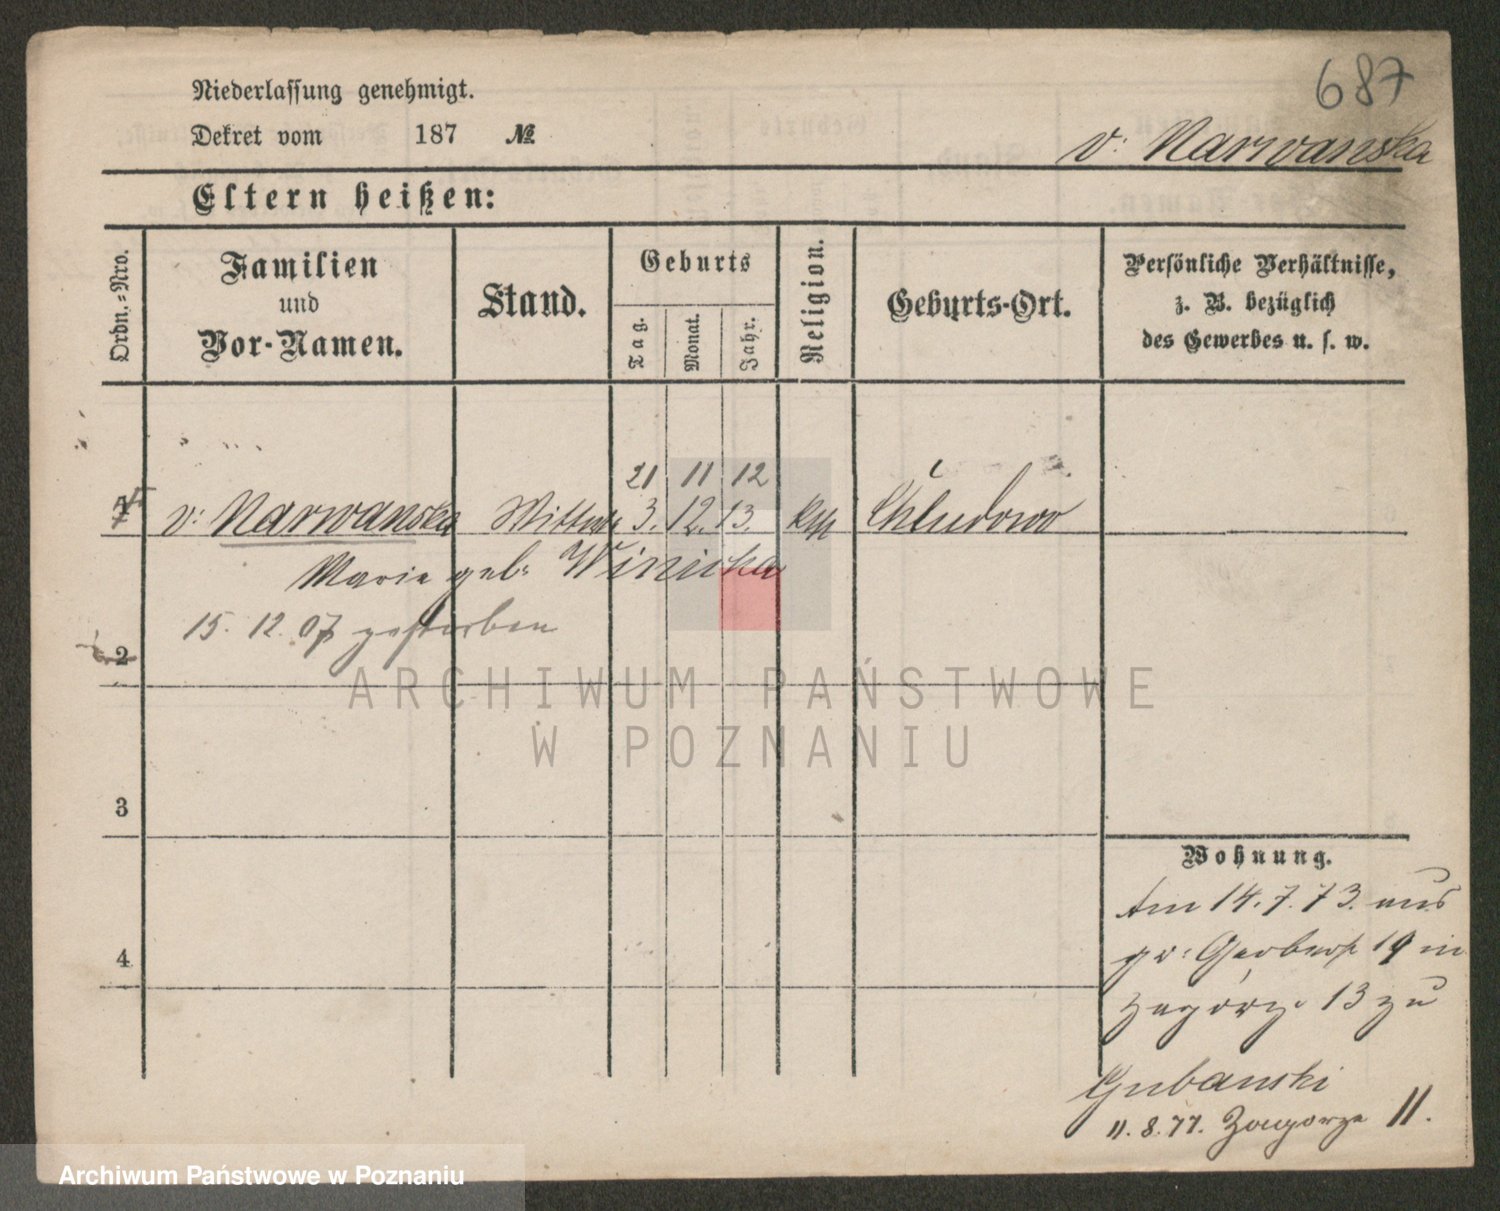 687
Niederlassung genehmigt.
Dekret vom 187 №
v: Narwanska
Eltern heißen:
Ordn.-Nro.
Familien
und
Vor-Namen.
Stand.
Geburts
Tag.
Monat.
Jahr.
Religion.
Geburts-Ort.
Persönliche Verhältnisse,
z. B. bezüglich
des Gewerbes u. s. w.
21 11 12
1 v: Narwanska Wittwe 3. 12. 13. kth Chludowo
Marie geb: Winicka
15. 12. 07 gestorben
2
ARCHIWUM PAŃSTWOWE
W POZNANIU
3
Wohnung.
Am 14. 7. 73. aus
gr: Gerberst 19 in
Zagorze 13 zu
Gubanski
11. 8. 77. Zagorze 11.
4
Archiwum Państwowe w Poznaniu